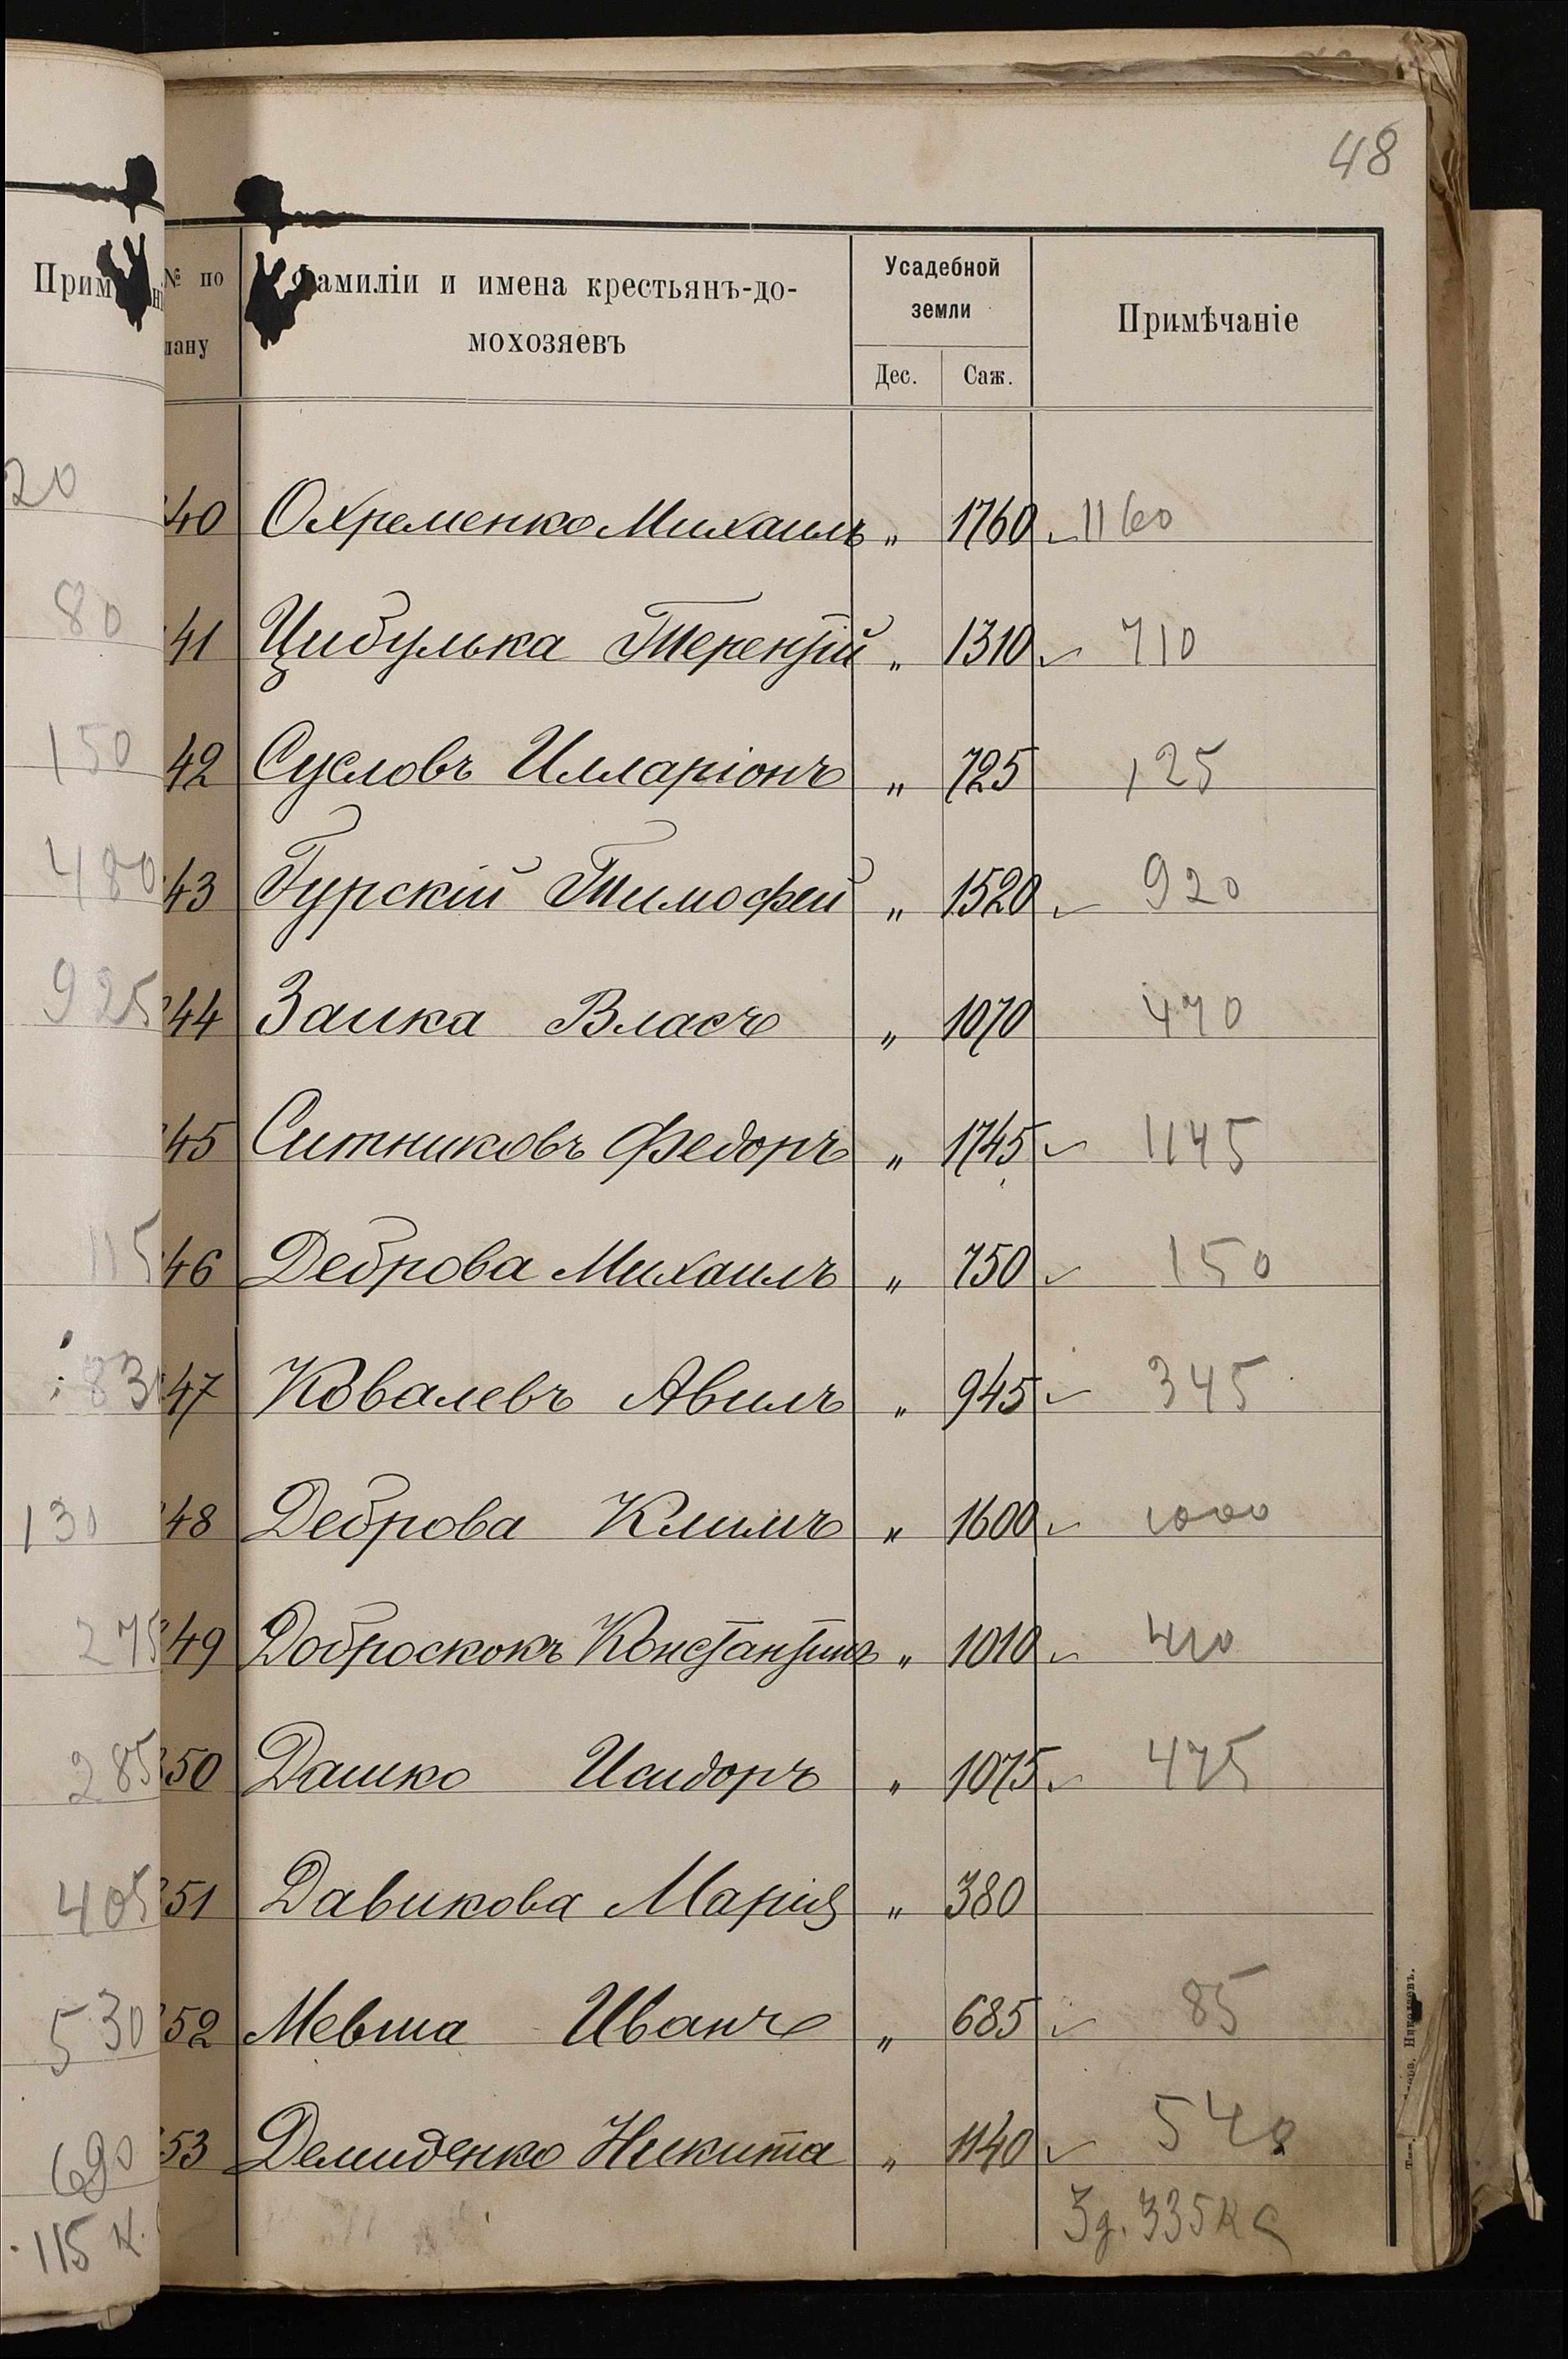 48
№ по плану Фамиліи и имена крестьянъ-домохозяевъ Усадебной земли Примѣчаніе
Дес. Саж.
40 Охременко Михаилъ „ 1760 1160
41 Цибулька Терентій „ 1310 710
42 Сусловъ Илларіонъ „ 725 125
43 Гурскій Тимофей „ 1520 920
44 Заика Власъ „ 1070 470
45 Ситниковъ Федоръ „ 1745 1145
46 Деброва Михаилъ „ 750 150
47 Ковалевъ Авилъ „ 945 345
48 Деброва Климъ „ 1600 1000
49 Доброскокъ Константинъ „ 1010 410
50 Дашко Исидоръ „ 1075 475
51 Давикова Марія „ 380
52 Мевша Иванъ „ 685 85
53 Демиденко Никита „ 1140 540
3д. 335 к с
Прим
20
80
150
480
925
115
83
130
275
285
405
530
690
115 к.